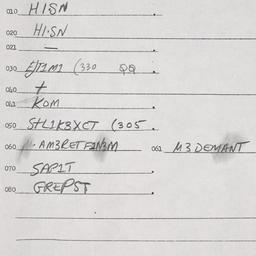 010 HISN
020 HI·SN
021 —
030 EJTIMI (330 QQ
040 +
041 KOM
050 StLIK3XCT (305
060 ·AM3RETFINIM 061 M3DEMANT
070 SAPIT
080 GREPST